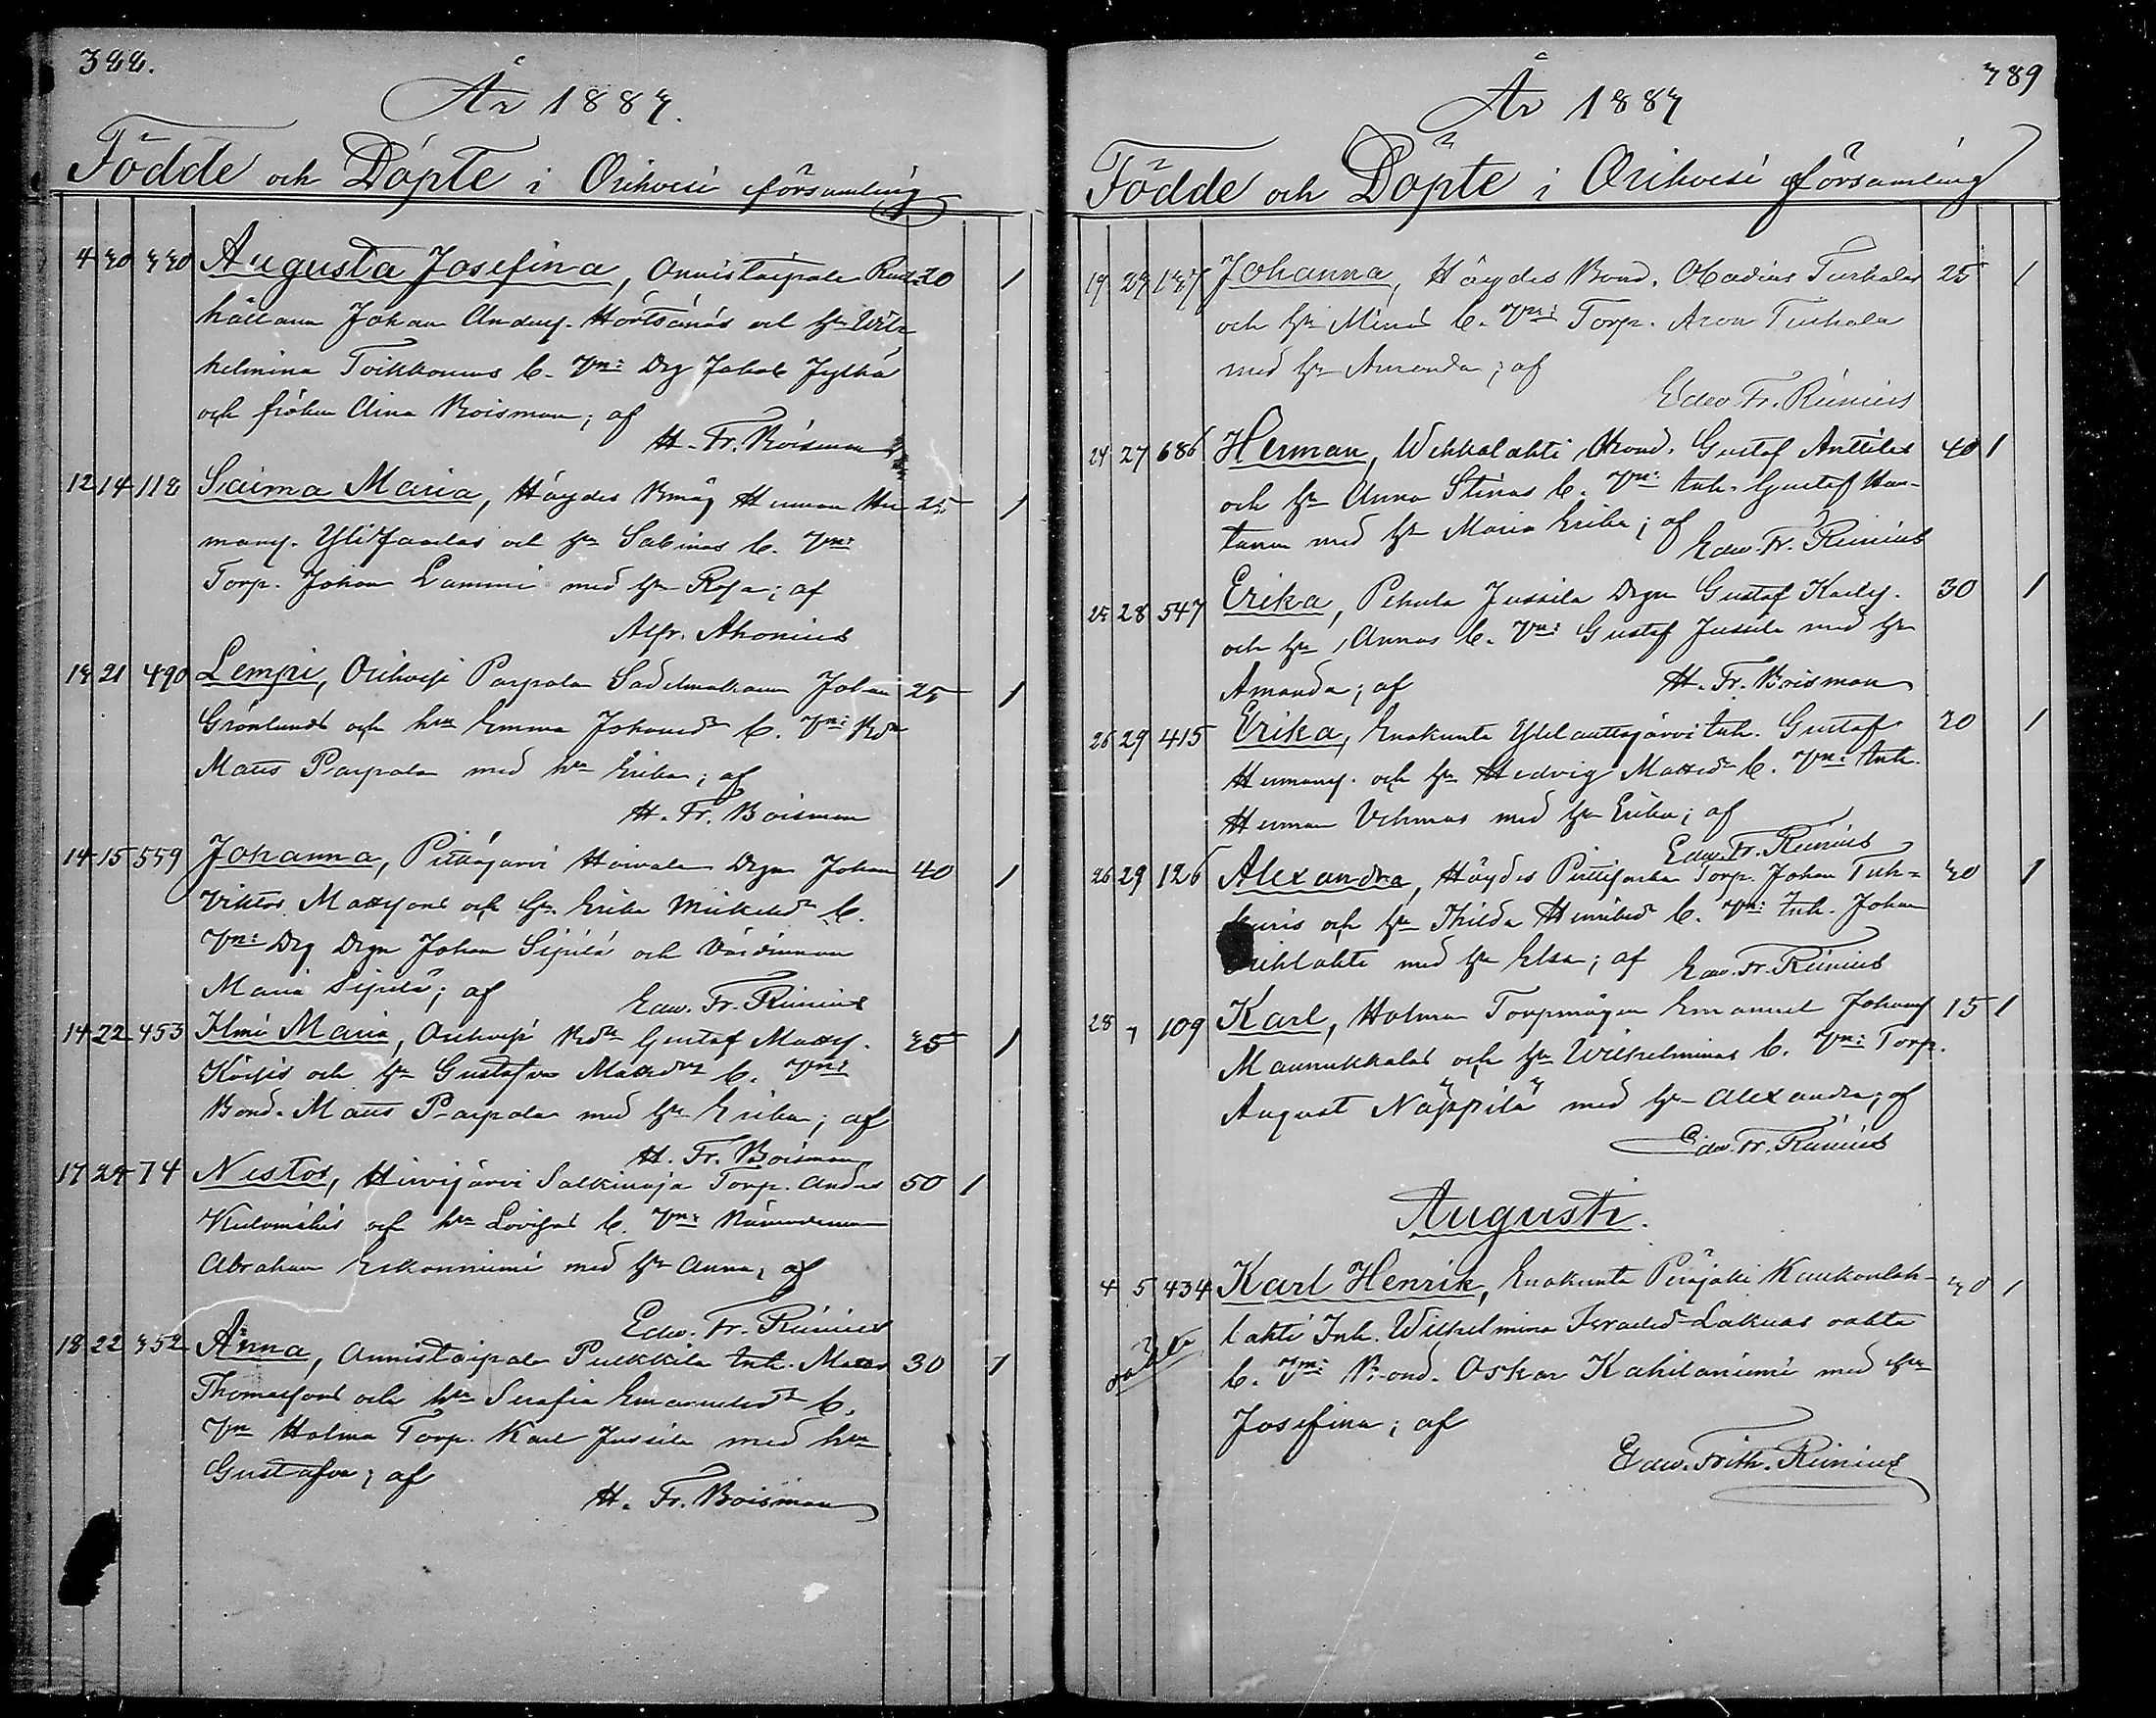 388.
År 1887.
Födde och Döpte i Orihvesi församling
4 30 330 Augusta Josefina, Onnistaipale 20 1
hållaren Johan Anders. och hu Wil-
helmina Toikkonens b. Vn: Drg Jakob Jylhä
och fröken Aina Boisman; af
H. Fr. Boisman
12 14 118 Saima Maria, Höydes Bmåg Herman Her- 25 1
mans. Yli och hu Sabinas b. Vn:
Torp. Johan Lammi med hu Rosa; af
Alfr. Ahonius
13 21 490 Lempi, Orihvesi Parpala Sadelmakaren Johan 25 1
Grönlunds och hu Emma Johansdr b. Vn: Bdn
Matts Parpala med hu Erika; af
H. Fr. Boisman
14 15 559 Johanna, Pitkäjärvi Drgn Johan 40 1
Viktor Mattsons och hu Erika Mickelsdr b.
Vn: Drg Johan Sipilä och
Maria Sipilä; af Edw. Fr. Rünius
14 22 453 Ilmi Maria, Orihvesi Bdn Gustaf Matts. 35 1
och hu Gustafva Mattsdr b. Vn:
Bond. Matts Parpala med hu Erika; af
H. Fr. Boisman
17 24 74 Nestor, Hirvijärvi Salkinoja Torp. Anders 50 1
och hu Lovisas b. Vn:
Abraham Erkonniemi med hu Anna; af
Edw. Fr. Rünius
18 22 352 Anna, Onnistaipale Pulkkila Inh. Matts 30 1
Thomassons och hu Serafia Emanuelsdr b.
Vn Holma Torp. Karl Jussila med hu
Gustafva; af
H. Fr. Boisman
389
År 1887
Födde och Döpte i Orihvesi församling
19 24 137 Johanna, Höydes Bond. Obadias Turkalas 25 1
och hu Minas b. Vn: Torp. Aron Turkala
med hu Amanda; af
Edw. Fr. Rünius
24 27 686 Herman, Wehkalahti Bond. Gustaf Anttilas 40 1
och hu Anna Stinas b. Vn: Inh. Gustaf
med hu Maria Erika; af
Edw. Fr. Rünius
25 28 547 Erika, Pehula Jussila Drgn Gustaf Karls. 30 1
och hu Annas b. Vn: Gustaf Jussila med hu
Amanda; af H. Fr. Boisman
26 29 415 Erika, Enokunta Inh. Gustaf 20 1
Hermans. och hu Hedvig Mattsdr b. Vn: Inh.
Herman Vehmas med hu Erika; af
Edw. Fr. Rünius
26 29 126 Alexandra, Höydes Torp. Johan 30 1
och hu Thilda Henriksdr b. Vn: Inh. Johan
med hu Elsa; af Edw. Fr. Rünius
28 7 109 Karl, Holma Torpmågen Emanuel Johans. 15 1
Mannukkalas och hu Wilhelminas b. Vn: Torp.
August Näppilä med hu Alexandra; af
Edw. Fr. Rünius
Augusti.
4 5 434 Karl Henrik, Enokunta Peräjoki 30 1
lahti Inh. Wilhelmina Israelsdr Lakuas oäkta
oäkta b. Vn: Bond. Oskar Kahilaniemi med hu
Josefina; af
Edw. Frith. Rünius